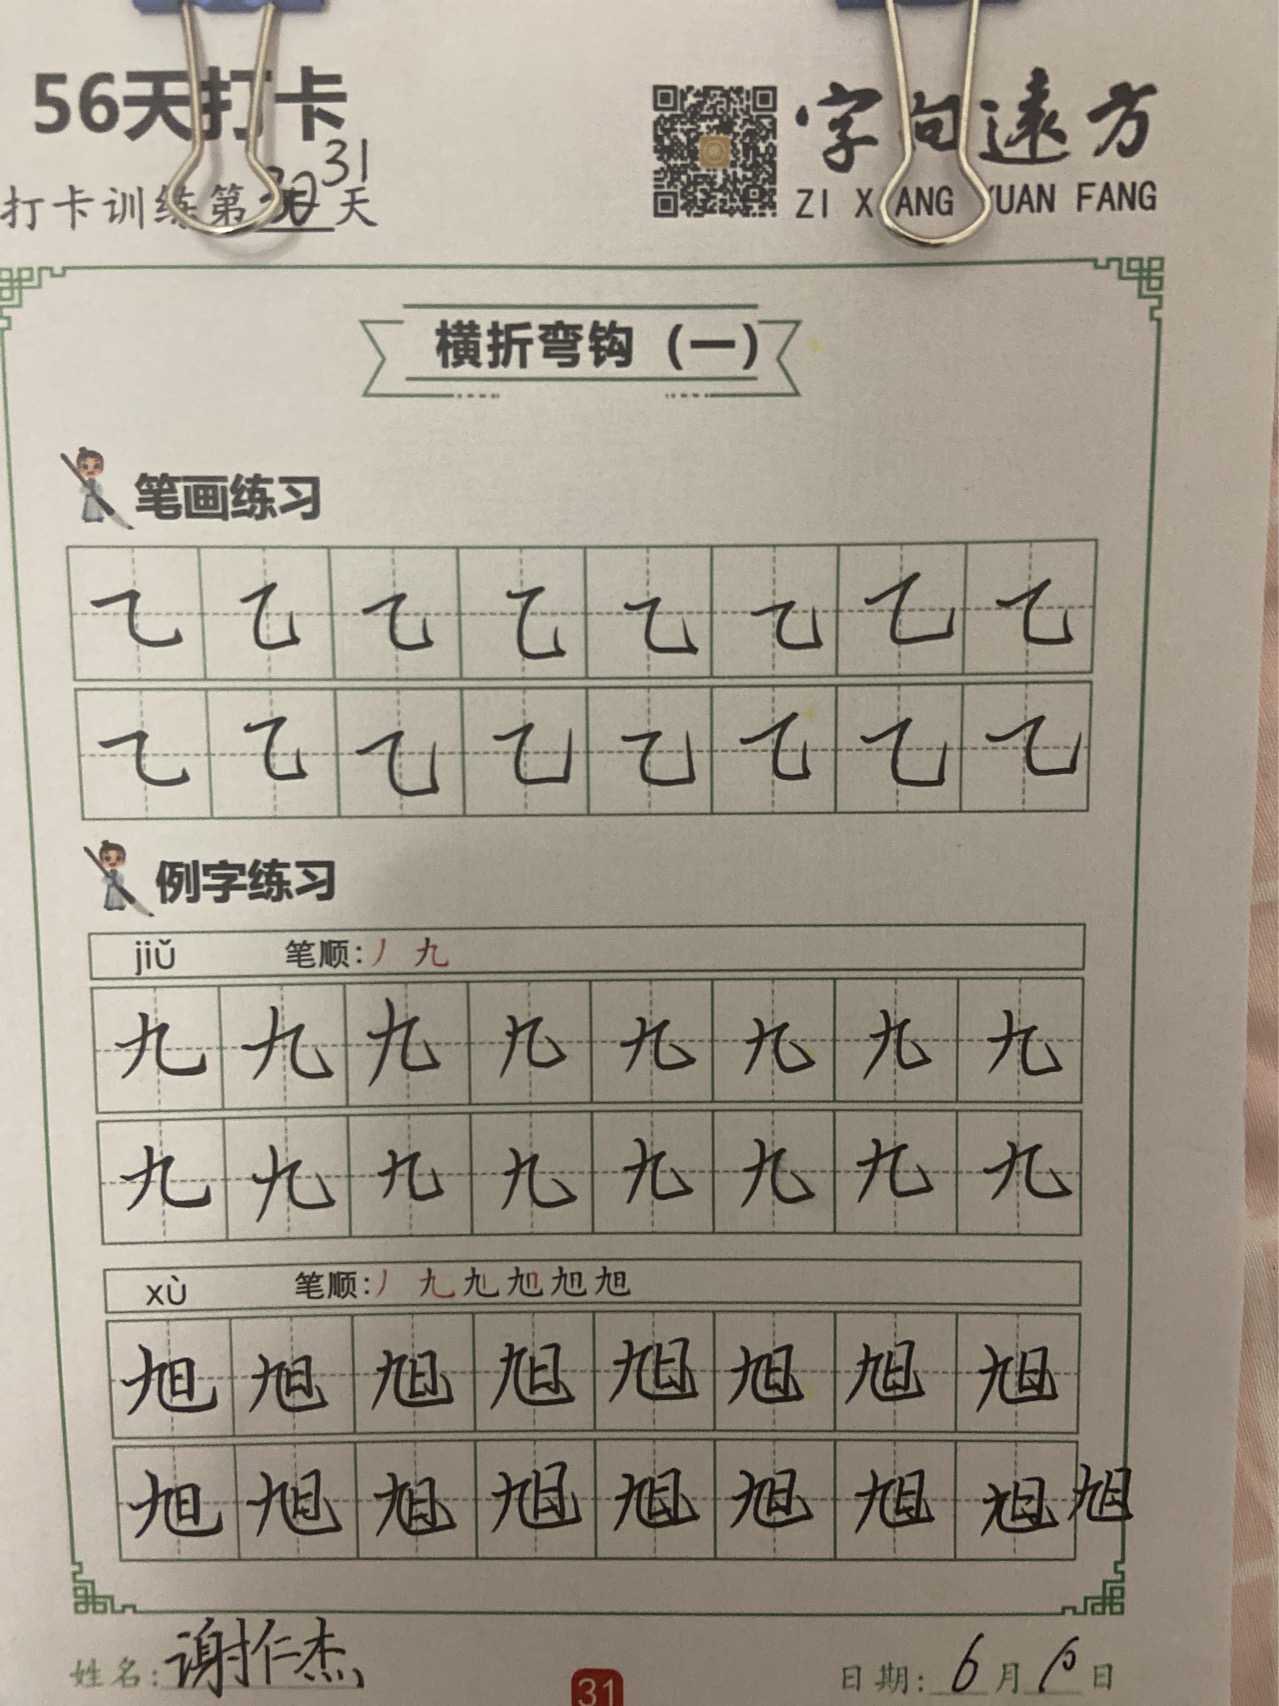 56天打卡
字向远方
ZI XIANG YUAN FANG
打卡训练第30 31天
横折弯钩（一）
笔画练习
乙乙乙乙乙乙乙乙
乙乙乙乙乙乙乙乙
例字练习
jiǔ 笔顺：丿 九
九九九九九九九九
九九九九九九九九
xù 笔顺：丿 九 九 旭 旭 旭
旭旭旭旭旭旭旭旭
旭旭旭旭旭旭旭旭旭
姓名：谢仁杰
31
日期：6月10日